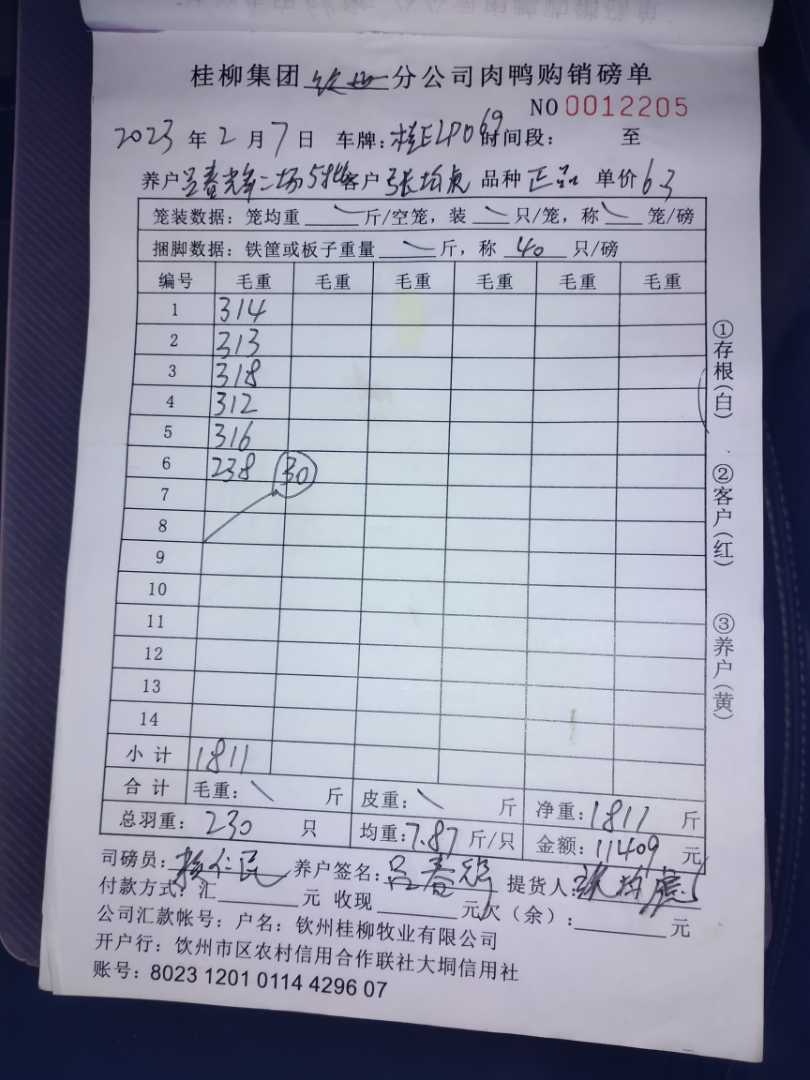 桂柳集团 钦州 分公司肉鸭购销磅单
NO 0012205
2023 年 2 月 7 日 车牌：桂 069 时间段： 至
养户 吕春辉二场5批 客户 张均虎 品种 正品 单价 6.3
笼装数据：笼均重 \ 斤/空笼，装 \ 只/笼，称 \ 笼/磅
捆脚数据：铁筐或板子重量 \ 斤，称 40 只/磅
编号 毛重 毛重 毛重 毛重 毛重 毛重
1 314
2 313
3 318
4 312
5 316
6 238 30
7
8
9
10
11
12
13
14
小 计 1811
合 计 毛重： \ 斤 皮重： \ 斤 净重：1811 斤
总羽重： 230 只 均重：7.87 斤/只 金额：11409 元
司磅员： 仁民 养户签名：吕春辉 提货人：张均虎
付款方式：汇 元 收现 元欠（余）： 元
公司汇款帐号：户名：钦州桂柳牧业有限公司
开户行：饮州市区农村信用合作联社大垌信用社
账号：8023 1201 0114 4296 07
①存根（白）
②客户（红）
③养户（黄）